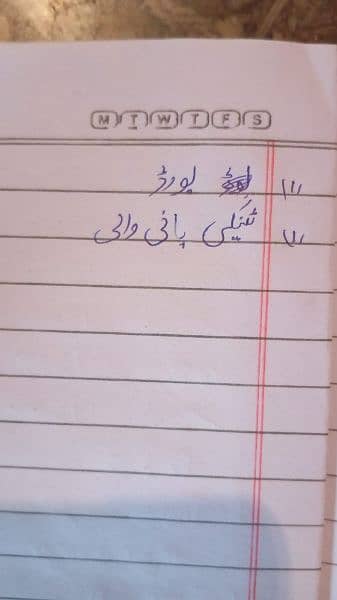 M T W T F S
(۱) بورڈ
(۲) ٹینکی پانی والی